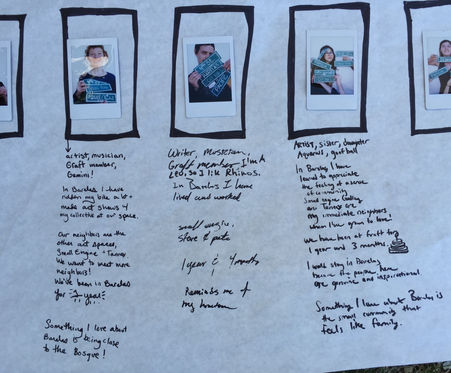 artist, musician,
Graft member,
Gemini!
In Barelas I have
ridden my bike a lot
made art shows &
my collective art our space.
Our neighbors are the
other art spaces,
Small Engine + Tanner.
We want to meet more
neighbors!
We've been in Barelas
for 1 year
Something I love about
Barelas is being close
to the Bosque!
Writer, musician,
Graft member I'm a
Leo, so I like Rhinos.
In Barelas I have
lived and worked
small engine,
store &
1 year & 4 months
Reminds me of
my hometown
Artist, sister, daughter
Aquarius, goof ball
In Barelas I have
learned to appreciate
the feeling of a sense
of community
Small engine Gallery
and Tanner are
my immediate neighbors
whom I've grown to love!
We have been at Graft for
1 year and 3 months
I would stay in Barelas
because the people here
are genuine and inspirational
Something I love about Barelas is
the small community that
feels like family.